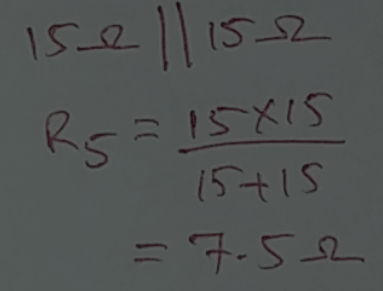 15Ω || 15Ω
R5 = 15×15
15+15
= 7.5Ω